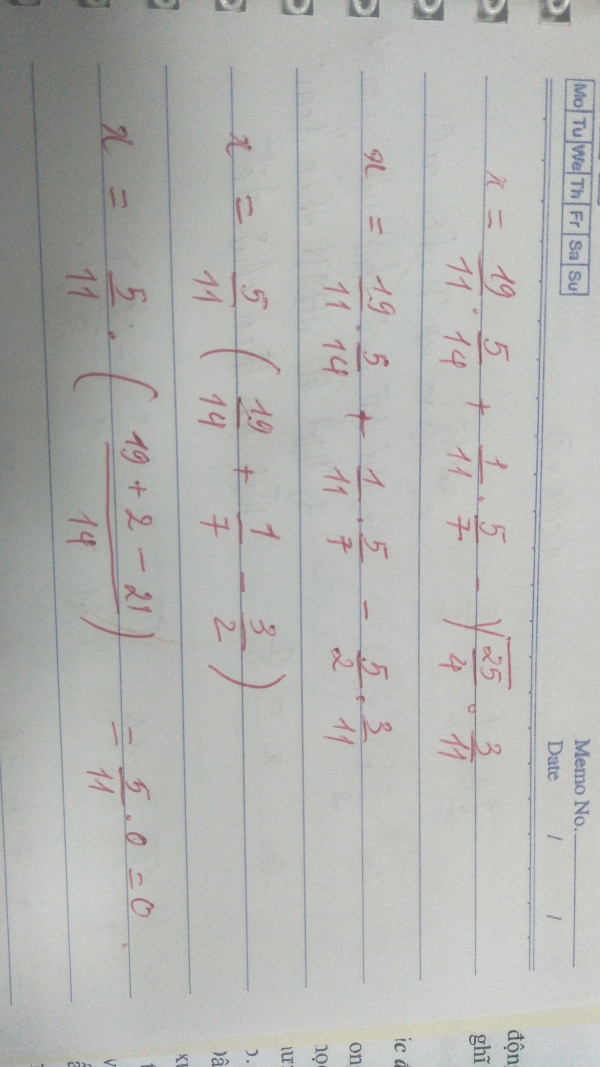 Mo Tu We Th Fr Sa Su
Memo No.
Date / /
x = 19/11 . 5/14 + 1/11 . 5/7 - √(25/4) . 3/11
x = 19/11 . 5/14 + 1/11 . 5/7 - 5/2 . 3/11
x = 5/11 ( 19/14 + 1/7 - 3/2 )
x = 5/11 . ( (19 + 2 - 21)/14 ) = 5/11 . 0 = 0
độn
ghĩ